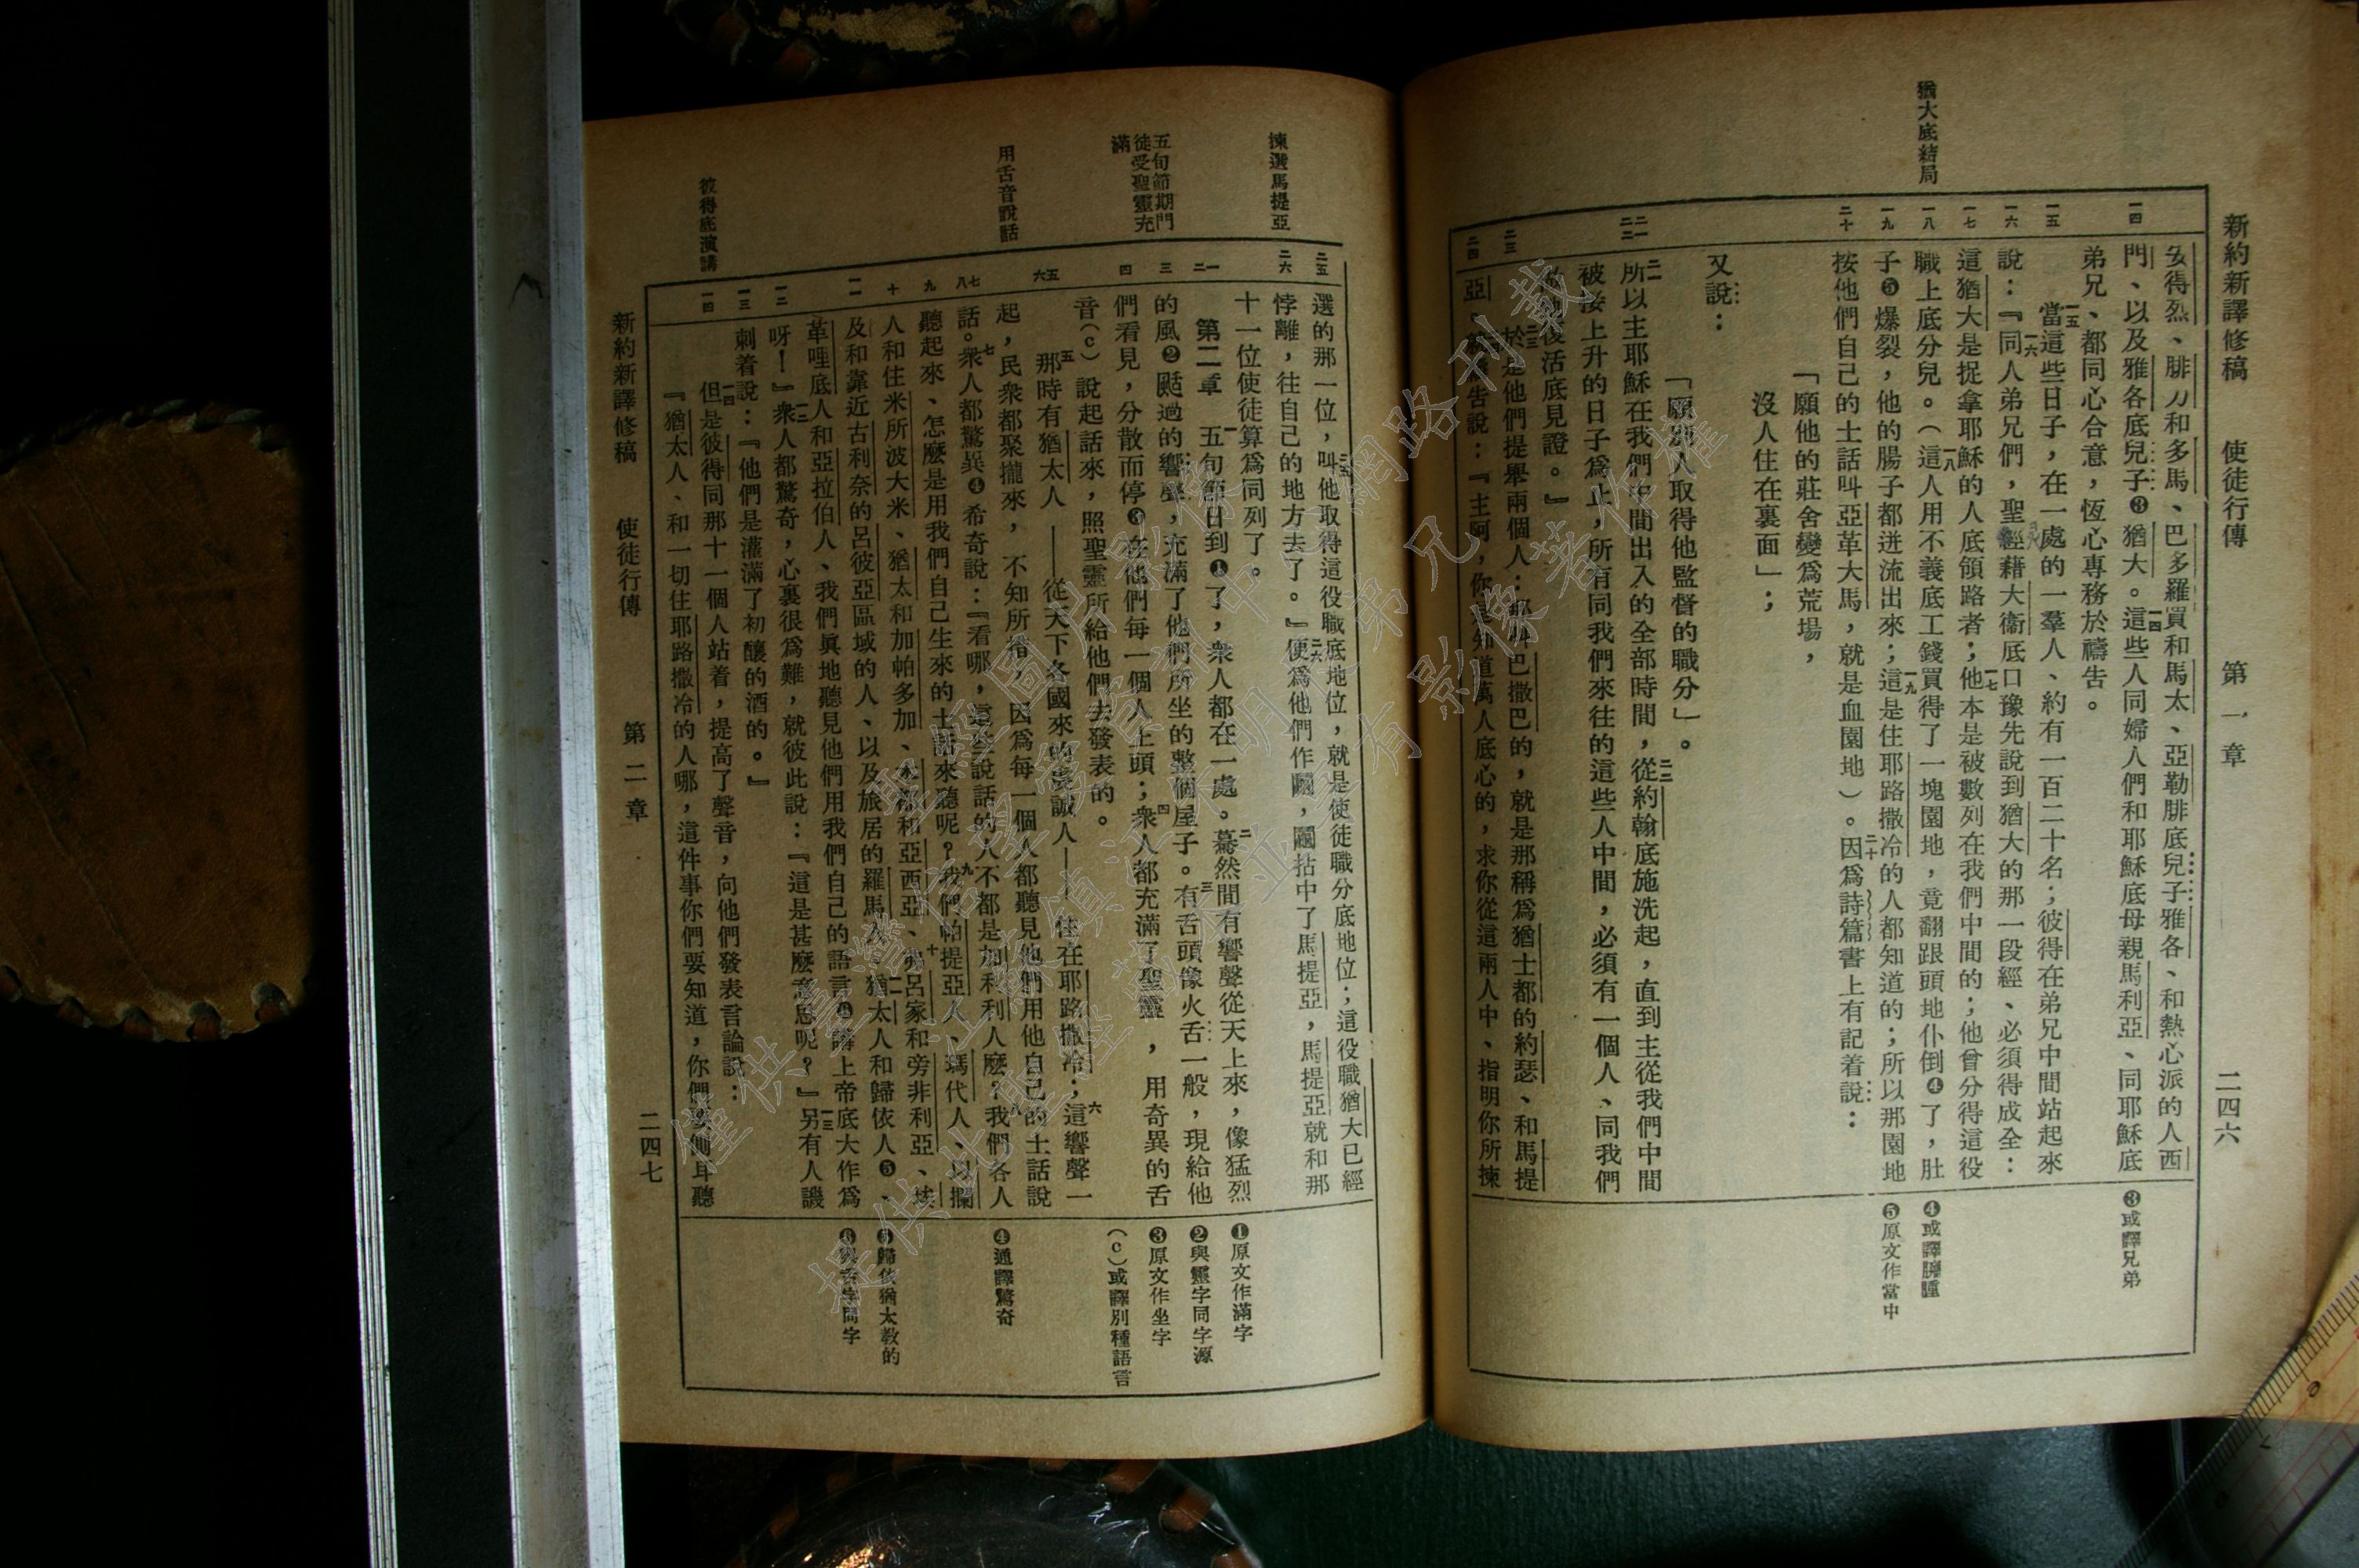 新約新譯修稿 使徒行傳 第一章 二四六
猶大底結局
一四
一五
一六
一七
一八
一九
二十
二一
二二
二三
二四
安得烈、腓力和多馬、巴多羅買和馬太、亞勒腓底兒子雅各、和熱心派的人西
門、以及雅各底兒子❸猶大。一四這些人同婦人們和耶穌底母親馬利亞、同耶穌底
弟兄、都同心合意，恆心專務於禱告。
一五當這些日子，在一處的一羣人、約有一百二十名；彼得在弟兄中間站起來
說：『一六同人弟兄們，聖經藉大衞底口豫先說到猶大的那一段經、必須得成全：
這猶大是捉拿耶穌的人底領路者；一七他本是被數列在我們中間的；他曾分得這役
職上底分兒。（一八這人用不義底工錢買得了一塊園地，竟翻跟頭地仆倒❹了，肚
子❺爆裂，他的腸子都迸流出來；一九這是住耶路撒冷的人都知道的；所以那園地
按他們自己的土話叫亞革大馬，就是血園地）。二十因爲詩篇書上有記着說：
「願他的莊舍變爲荒場，
沒人住在裏面」；
又說：
「願別人取得他監督的職分」。
二一所以主耶穌在我們中間出入的全部時間，二二從約翰底施洗起，直到主從我們中間
被接上升的日子爲止，所有同我們來往的這些人中間，必須有一個人、同我們
復活底見證。』
二三於是他們提舉兩個人：那叫巴撒巴的，就是那稱爲猶士都的約瑟、和馬提
亞 告說：『主阿，你是知道萬人底心的，求你從這兩人中、指明你所揀
❸或譯兄弟
❹或譯臃腫
❺原文作當中
揀選馬提亞
五旬節期門
徒受聖靈充
滿
用舌音說話
彼得底演講
二五
二六
一
二
三
四
五
六
七
八
九
十
一一
一二
一三
一四
選的那一位，二五叫他取得這役職底地位，就是使徒職分底地位；這役職猶大已經
悖離，往自己的地方去了。』二六便爲他們作鬮，鬮拈中了馬提亞，馬提亞就和那
十一位使徒算爲同列了。
第二章 一五旬節日到❶了，衆人都在一處。二驀然間有響聲從天上來，像猛烈
的風❷颳過的響聲，充滿了他們所坐的整個屋子。三有舌頭像火舌一般，現給他
們看見，分散而停❸在他們每一個人上頭；四衆人都充滿了聖靈，用奇異的舌
音（c）說起話來，照聖靈所給他們去發表的。
五那時有猶太人——從天下各國來的虔誠人——住在耶路撒冷；六這響聲一
起，民衆都聚攏來，不知所措，因爲每一個人都聽見他們用他自己的土話說
話。七衆人都驚異❹希奇說：『看哪，這些說話的人不都是加利利人麽？八我們各人
聽起來、怎麽是用我們自己生來的土話來聽呢？九我們帕提亞人、瑪代人、以攔
人和住米所波大米、猶太和加帕多加、本都和亞西亞、十弗呂家和旁非利亞、埃
及和靠近古利奈的呂彼亞區域的人、以及旅居的羅馬人、一一猶太人和歸依人❺、
革哩底人和亞拉伯人、我們眞地聽見他們用我們自己的語言❻講上帝底大作爲
呀！』一二衆人都驚奇，心裏很爲難，就彼此說：『這是甚麽意思呢？』一三另有人譏
刺着說：『他們是灌滿了初釀的酒的。』
一四但是彼得同那十一個人站着，提高了聲音，向他們發表言論說：
『猶太人、和一切住耶路撒冷的人哪，這件事你們要知道，你們要側耳聽
❶原文作滿字
❷與靈字同字源
❸原文作坐字
（c）或譯別種語言
❹通譯驚奇
❺歸依猶太教的
❻與舌字同字
新約新譯修稿 使徒行傳 第二章 二四七